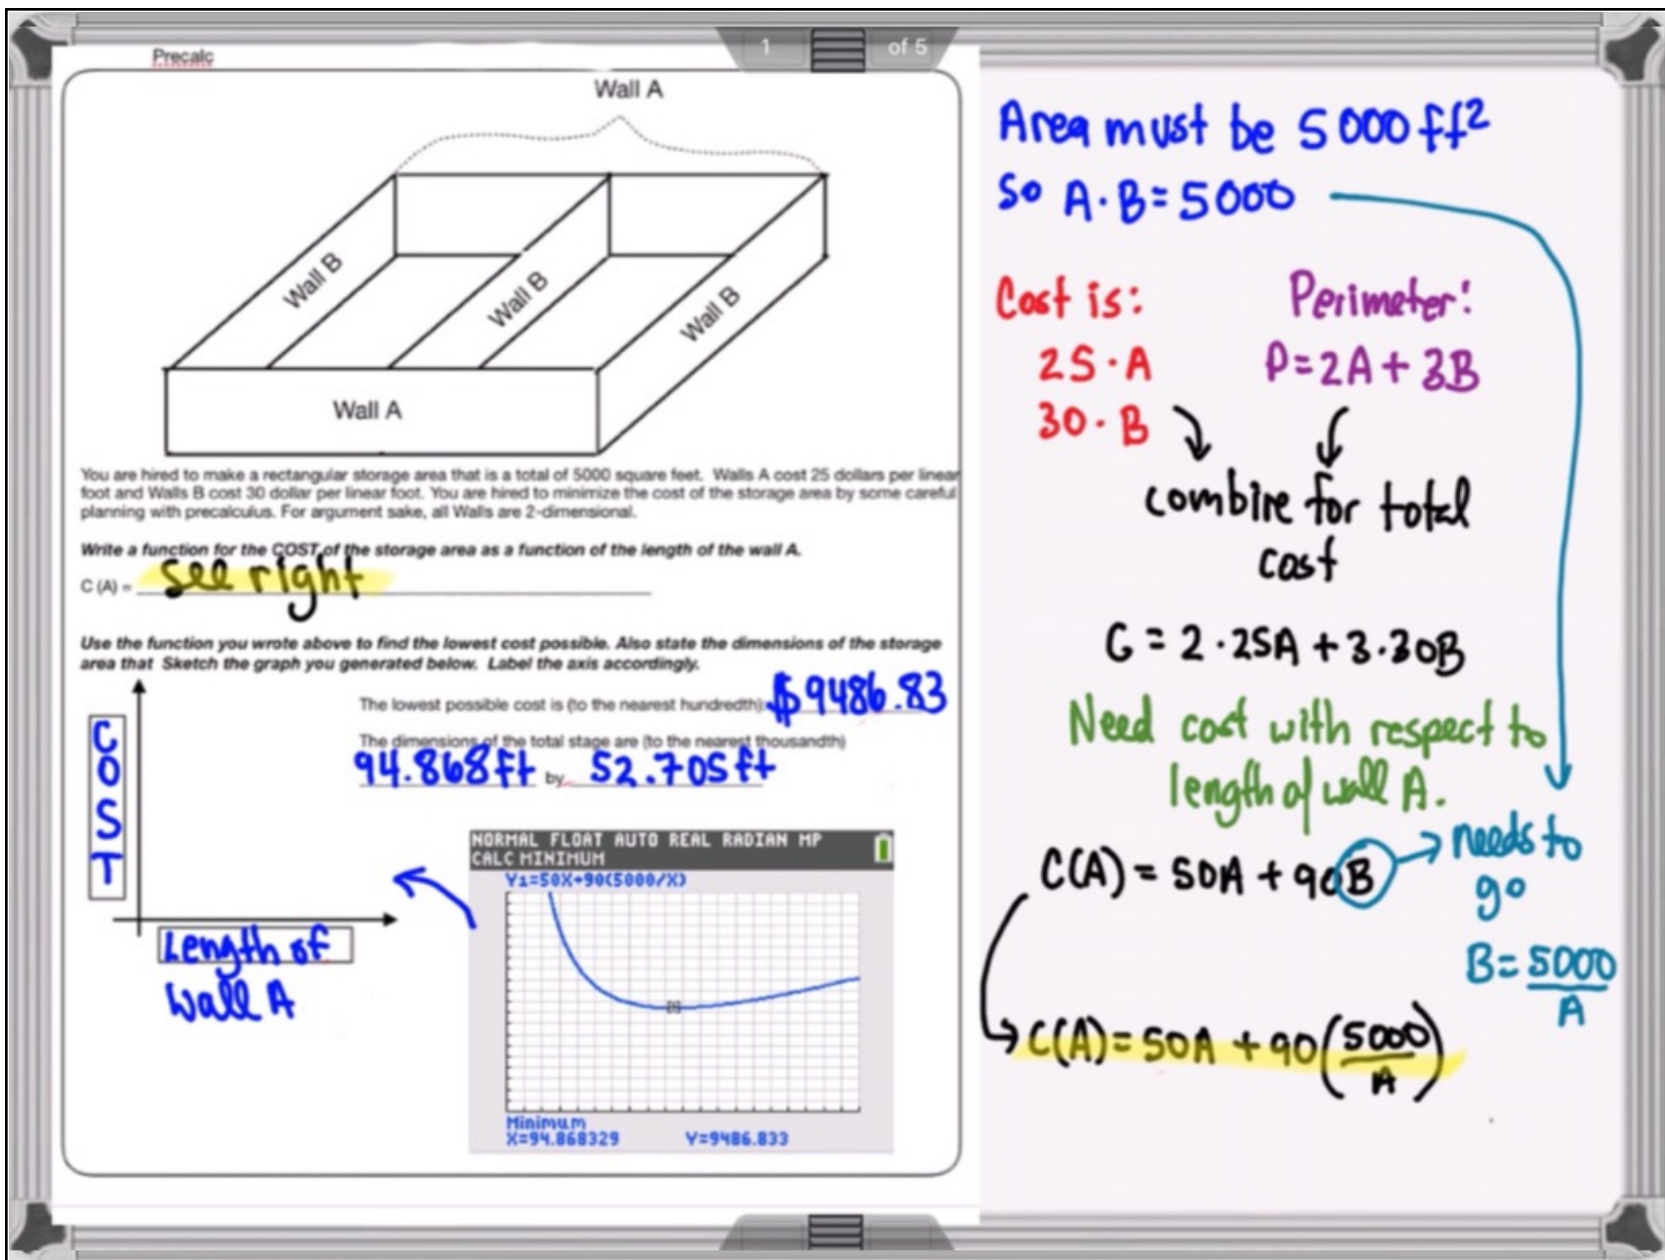 1 of 5
Precalc
Wall A
Wall B
Wall B
Wall B
Wall A
You are hired to make a rectangular storage area that is a total of 5000 square feet. Walls A cost 25 dollars per linear
foot and Walls B cost 30 dollar per linear foot. You are hired to minimize the cost of the storage area by some careful
planning with precalculus. For argument sake, all Walls are 2-dimensional.
Write a function for the COST of the storage area as a function of the length of the wall A.
C (A) = see right
Use the function you wrote above to find the lowest cost possible. Also state the dimensions of the storage
area that Sketch the graph you generated below. Label the axis accordingly.
The lowest possible cost is (to the nearest hundredth): $9486.83
The dimensions of the total stage are (to the nearest thousandth)
94.868ft by 52.705ft
COST
Length of
Wall A
NORMAL FLOAT AUTO REAL RADIAN MP
CALC MINIMUM
Y1=50X+90(5000/X)
Minimum
X=94.868329 Y=9486.833
Area must be 5000ft²
So A·B=5000
Cost is:
25·A
30·B
Perimeter:
P=2A+3B
combine for total
cost
C = 2·25A + 3·30B
Need cost with respect to
length of wall A.
C(A) = 50A + 90B
needs to
go
B=5000/A
C(A)=50A+90(5000/A)